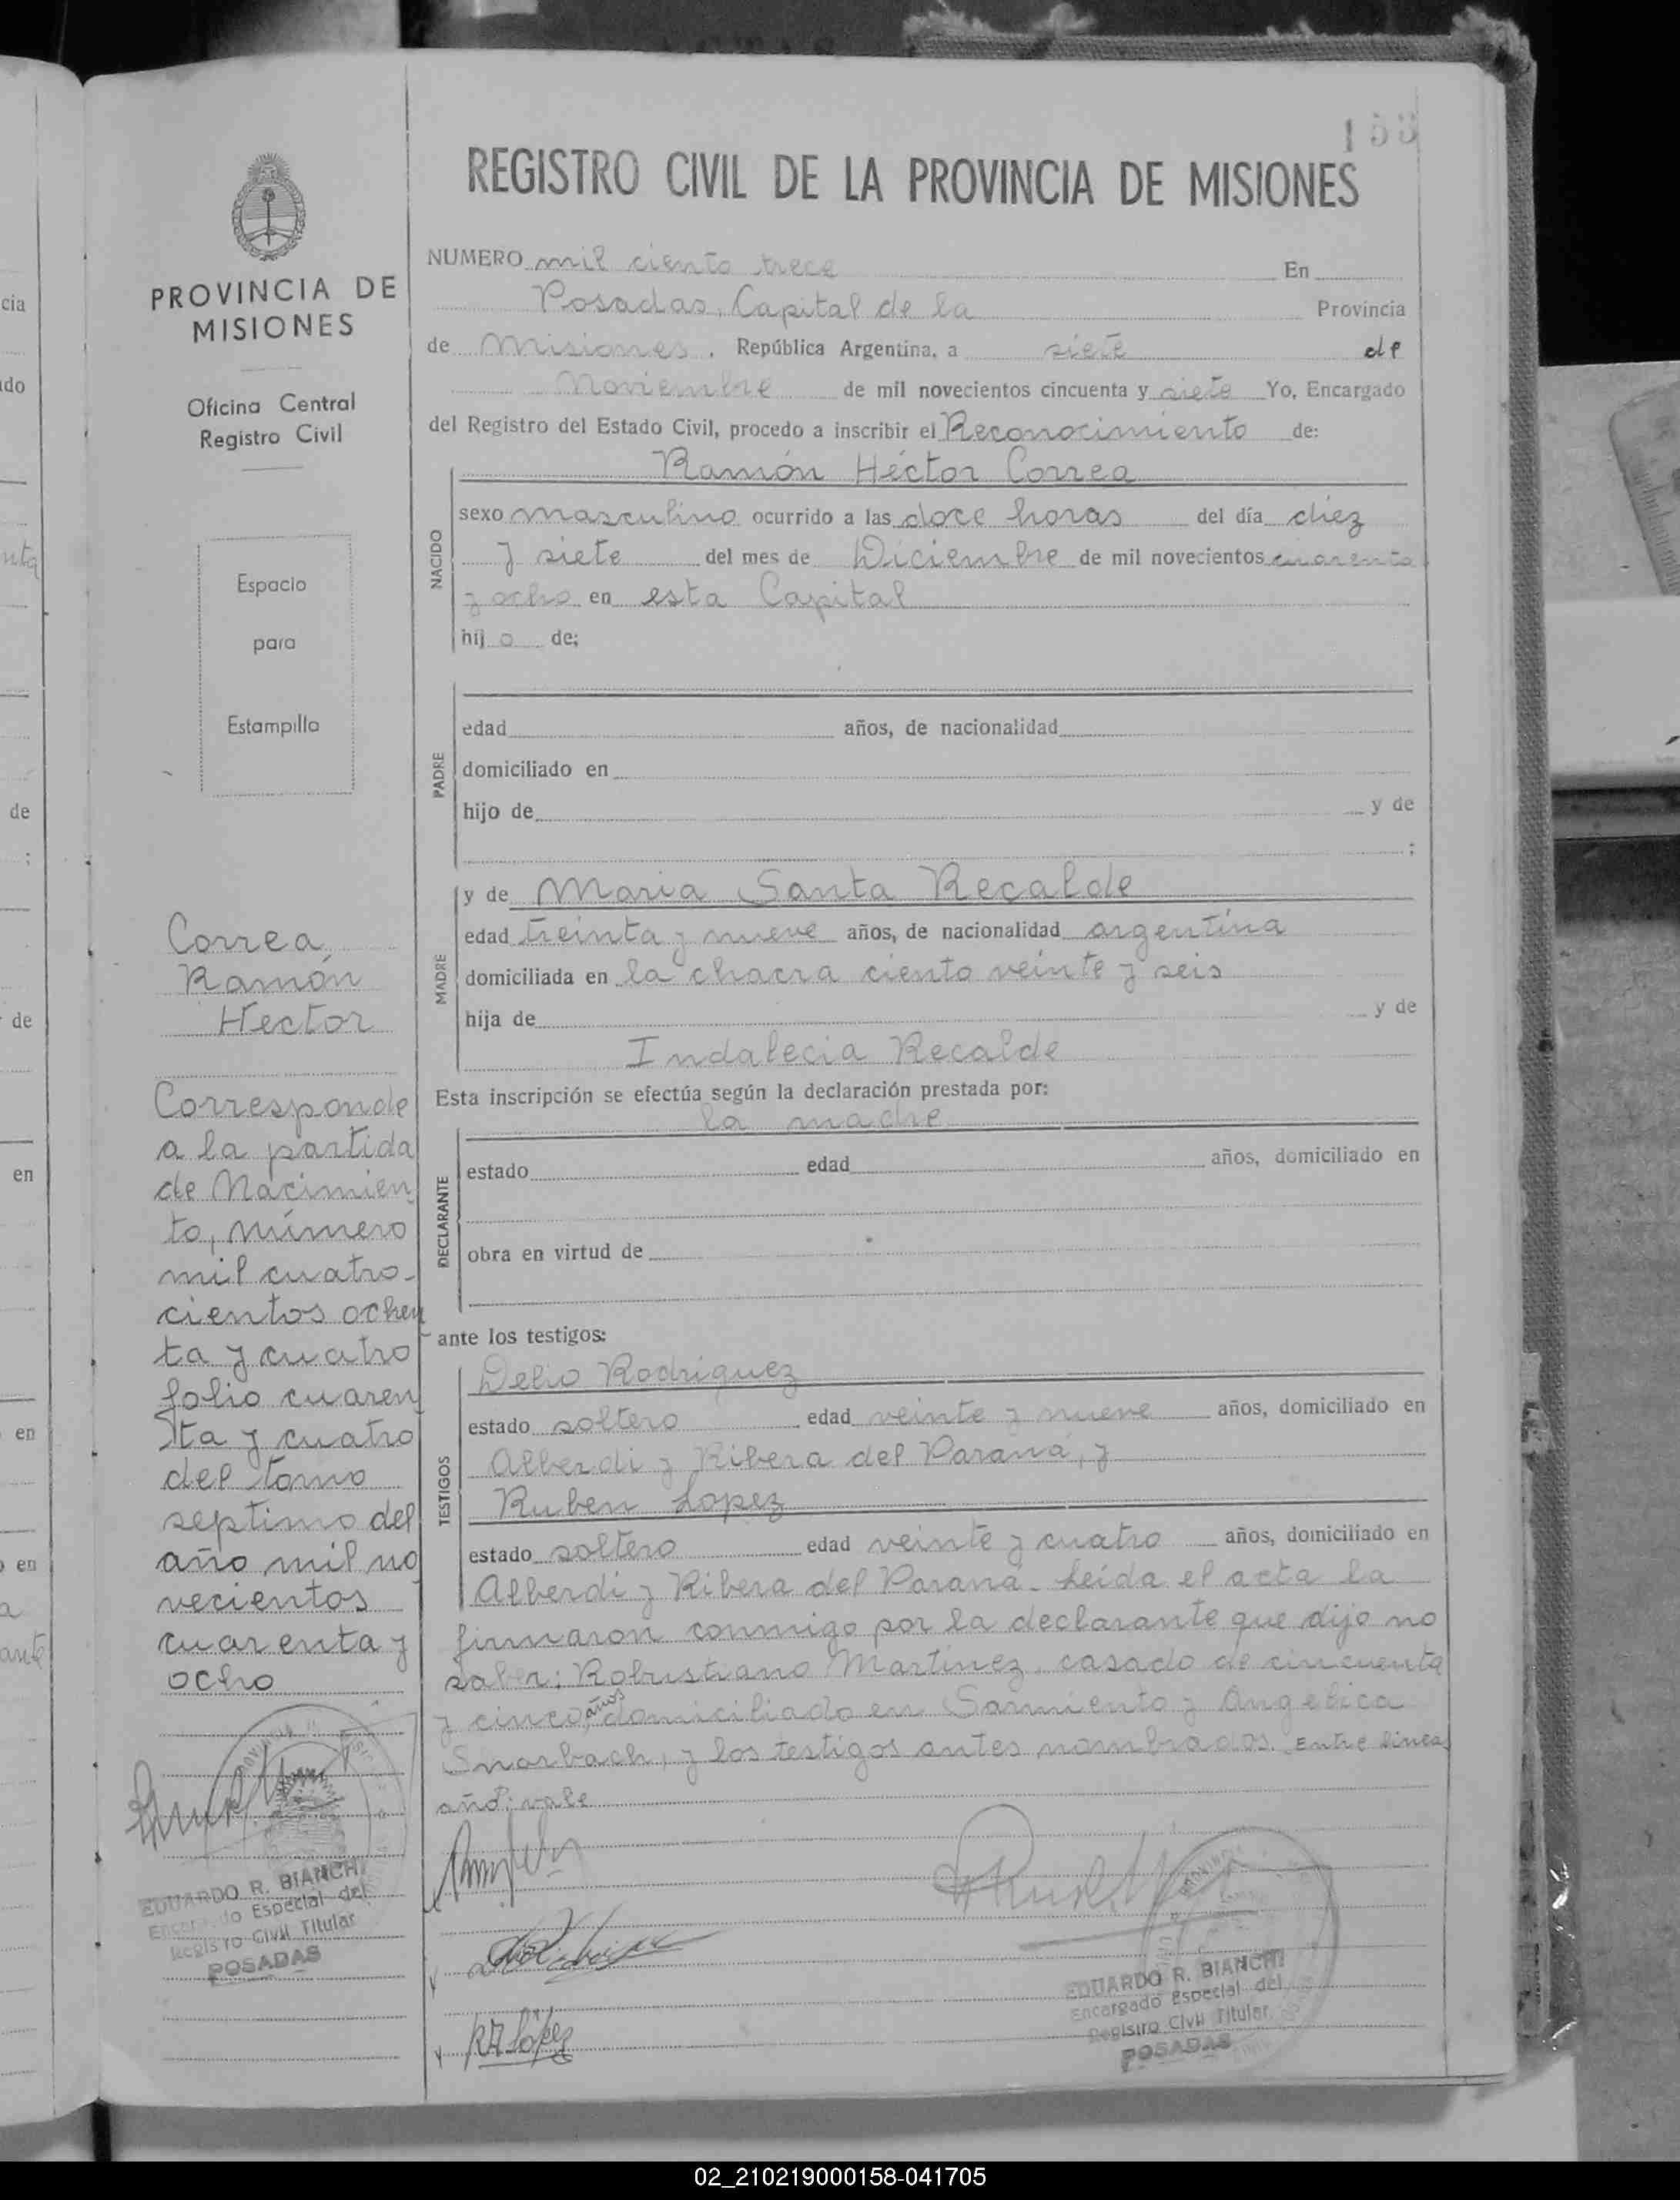 REGISTRO CIVIL DE LA PROVINCIA DE MISIONES
NUMERO mil ciento trece En
Posadas, Capital de la Provincia
de Misiones, República Argentina, a siete de
Noviembre de mil novecientos cincuenta y siete Yo, Encargado
del Registro del Estado Civil, procedo a inscribir el Reconocimiento de:
Ramón Héctor Correa
NACIDO
sexo masculino ocurrido a las doce horas del día diez
y siete del mes de Diciembre de mil novecientos cuarenta
y ocho en esta Capital
hij o de;
PADRE
edad años, de nacionalidad
domiciliado en
hijo de y de
;
MADRE
y de Maria Santa Recalde
edad treinta y nueve años, de nacionalidad argentina
domiciliada en la chacra ciento veinte y seis
hija de y de
Indalecia Recalde
Esta inscripción se efectúa según la declaración prestada por:
la madre
DECLARANTE
estado edad años, domiciliado en
obra en virtud de
ante los testigos:
TESTIGOS
Delio Rodriguez
estado soltero edad veinte y nueve años, domiciliado en
Alberdi y Ribera del Paraná, y
Ruben Lopez
estado soltero edad veinte y cuatro años, domiciliado en
Alberdi y Ribera del Paraná - Leída el acta la
firmaron conmigo por la declarante que dijo no
saber: Robustiano Martinez, casado de cincuenta
y cinco años domiciliado en Sarmiento y Angelica
y los testigos antes nombrados. Entre lineas
años: vale
RALópez
EDUARDO R. BIANCHI
Encargado Especial del
Registro Civil Titular
POSADAS
PROVINCIA DE
MISIONES
Oficina Central
Registro Civil
Espacio
para
Estampilla
Correa
Ramón
Hector
Corresponde
a la partida
de Nacimien
to, número
mil cuatro-
cientos ochen
ta y cuatro
folio cuaren
ta y cuatro
del tomo
septimo del
año mil no
vecientos
cuarenta y
ocho
EDUARDO R. BIANCHI
Encargado Especial del
Registro Civil Titular
POSADAS
cia
de
de
en
en
en
02_210219000158-041705